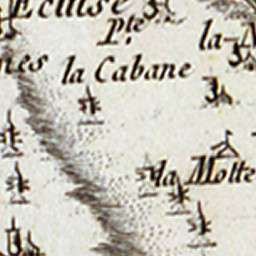 Ecluse
P.te
la
la Cabane
la Motte